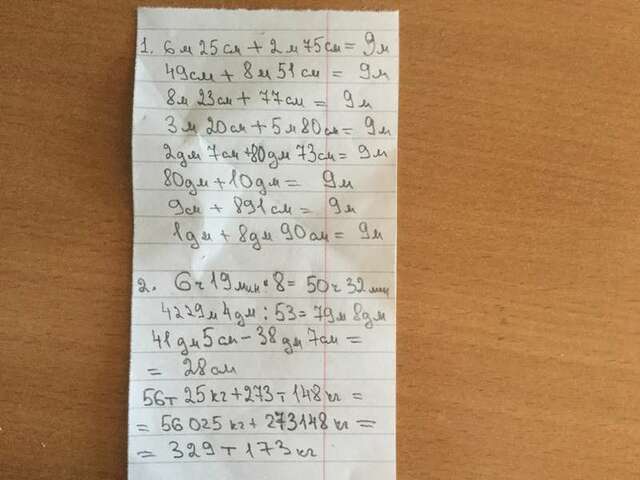 1. 6 м 25 см + 2 м 75 см = 9 м
49 см + 8 м 51 см = 9 м
8 м 23 см + 77 см = 9 м
3 м 20 см + 5 м 80 см = 9 м
2 дм 7 см + 80 дм 73 см = 9 м
80 дм + 10 дм = 9 м
9 см + 891 см = 9 м
1 дм + 8 дм 90 см = 9 м
2. 6 ч 19 мин • 8 = 50 ч 32 мин
4229 м 4 дм : 53 = 79 м 8 дм
41 дм 5 см − 38 дм 7 см =
= 28 см
56 т 25 кг + 273 т 148 кг =
= 56 025 кг + 273148 кг =
= 329 т 173 кг